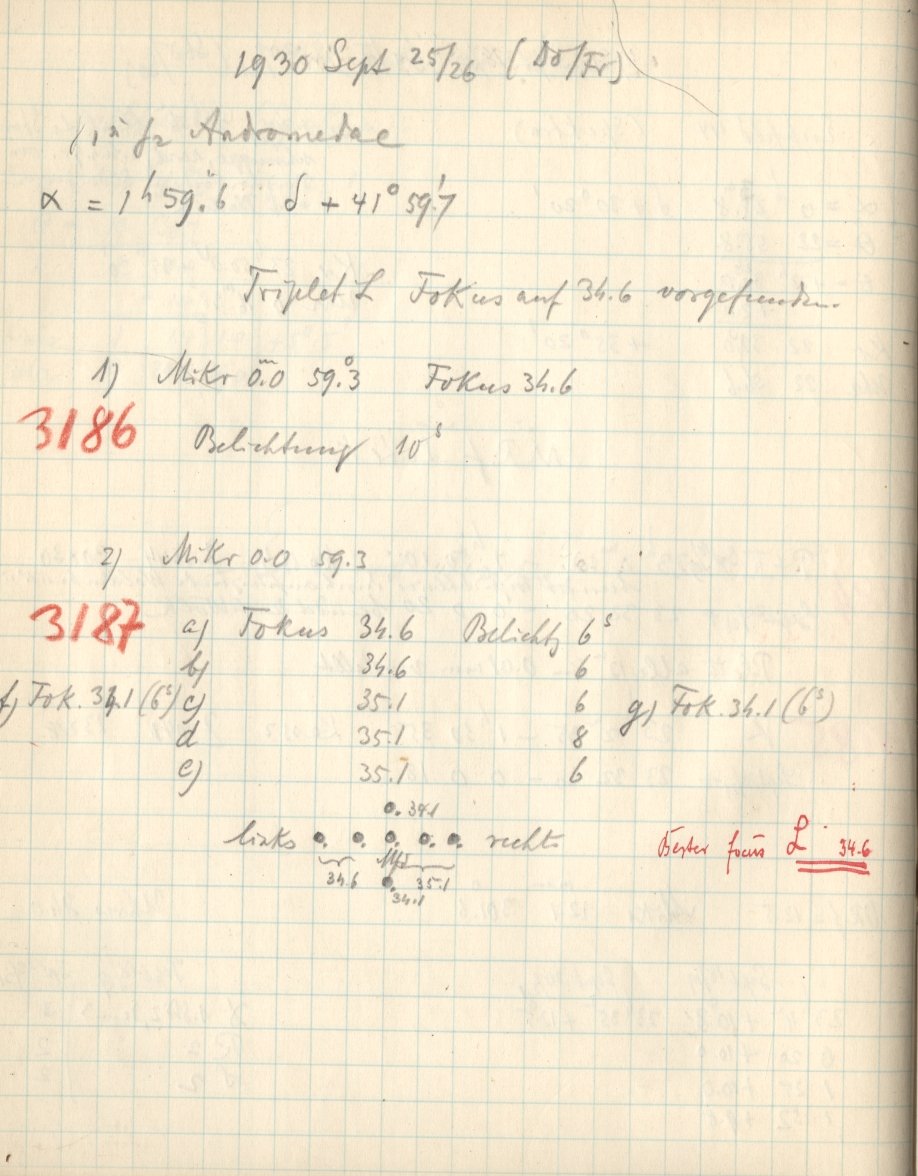 1930 Sept 25/26 (Do/Fr)
γ₂ Andromedae
α = 1ʰ 59ᵐ.6 δ + 41° 59'.7
Triplet L Fokus auf 34.6 vorgefunden.
1) Mikr 0ᵐ.0 59°.3 Fokus 34.6
3186 Belichtung 10ˢ
2) Mikr 0.0 59.3
3187 a) Fokus 34.6 Belichtg 6ˢ
b) 34.6 6
f) Fok. 34.1 (6ˢ) c) 35.1 6 g) Fok. 34.1 (6ˢ)
d 35.1 8
e) 35.1 6
34.1
links rechts Bester focus L 34.6
34.6 35.1
34.1